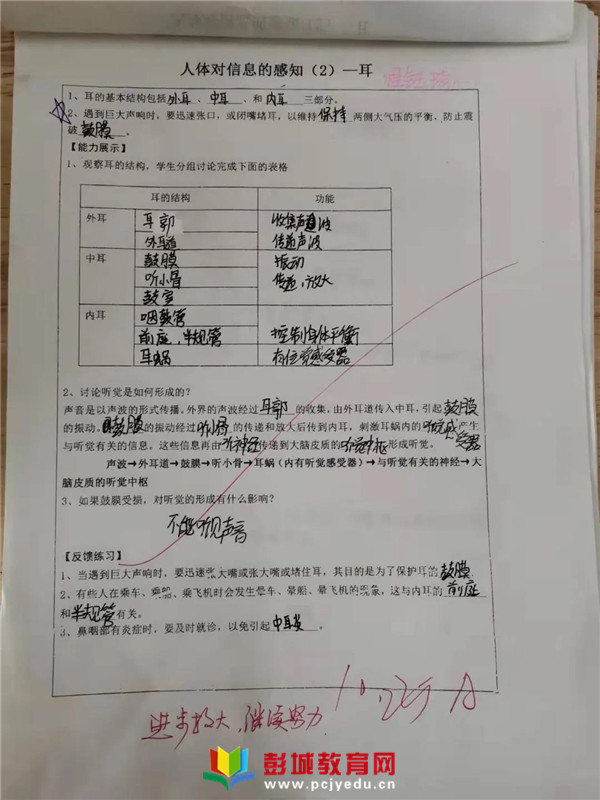 人体对信息的感知（2）—耳
1、耳的基本结构包括外耳、中耳、和内耳三部分。
2、遇到巨大声响时，要迅速张口，或闭嘴堵耳，以维持保持两侧大气压的平衡，防止震
破鼓膜。
【能力展示】
1、观察耳的结构，学生分组讨论完成下面的表格
耳的结构 功能
外耳 耳郭 收集声波
外耳道 传递声波
中耳 鼓膜 振动
听小骨 传递、放大
鼓室
内耳 咽鼓管
前庭、半规管 控制身体平衡
耳蜗 有位觉感受器
2、讨论听觉是如何形成的？
声音是以声波的形式传播。外界的声波经过耳郭的收集，由外耳道传入中耳，引起鼓膜
的振动。鼓膜的振动经过听小骨的传递和放大后传到内耳，刺激耳蜗内的听觉感受器产生
与听觉有关的信息。这些信息再由听神经传递到大脑皮质的听觉中枢形成听觉。
声波→外耳道→鼓膜→听小骨→耳蜗（内有听觉感受器）→与听觉有关的神经→大
脑皮质的听觉中枢
3、如果鼓膜受损，对听觉的形成有什么影响？
不能听见声音
【反馈练习】
1、当遇到巨大声响时，要迅速张大嘴或张大嘴或堵住耳，其目的是为了保护耳的鼓膜
2、有些人在乘车、乘船、乘飞机时会发生晕车、晕船、晕飞机的现象，这与内耳的前庭
和半规管有关。
3、鼻咽部有炎症时，要及时就诊，以免引起中耳炎。
10.25 A
进步较大，继续努力
彭城教育网
www.pcjyedu.cn